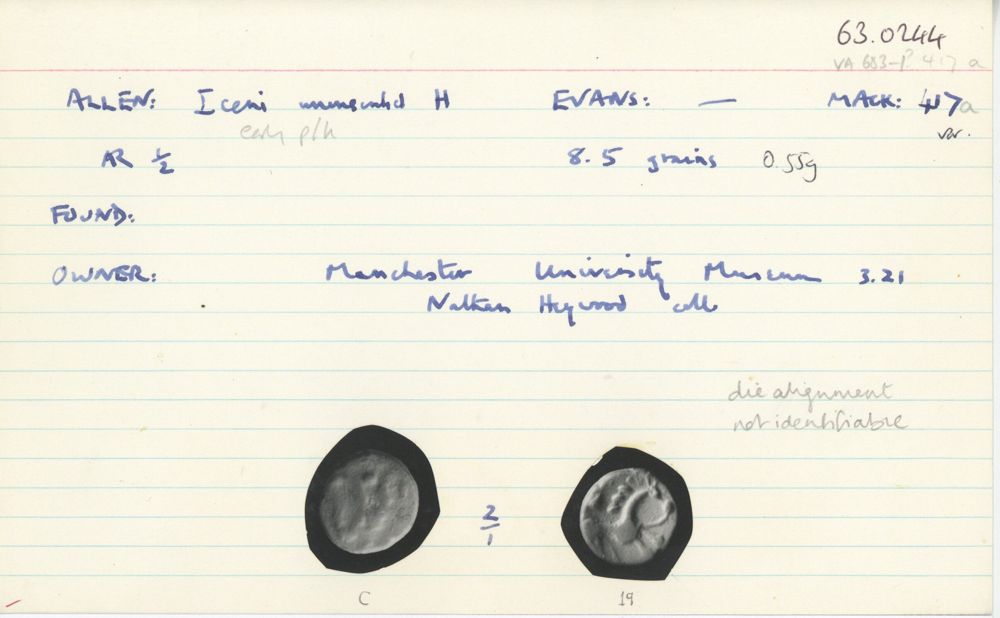 63.0244
VA 683-1? 417 a
ALLEN: Iceni uninscribed H EVANS: — MACK: 417a
early p/h var.
AR 1/2 8.5 grains 0.55g
FOUND:
OWNER: Manchester University Museum 3.21
Nathan Heywood coll
die alignment
not identifiable
2/1
C 19